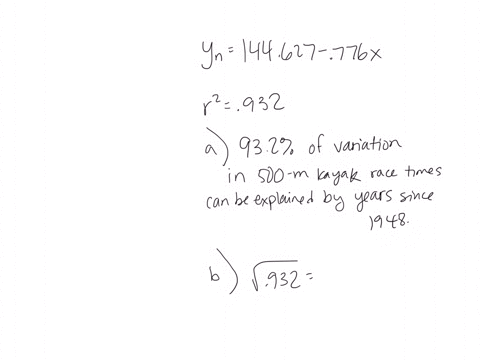 yn = 144.627-.776x
r² = .932
a) 93.2% of variation
in 500-m kayak race times
can be explained by years since
1948.
b) √.932 =